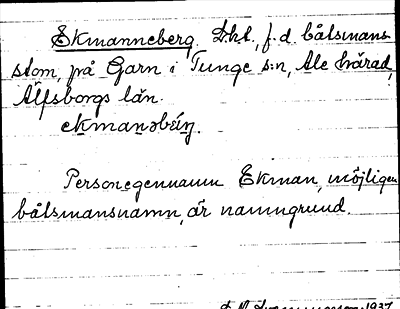 Ekmanneberg. Lht., f.d. båtsmans-
stom, på Garn i Tunge s:n, Ale härad,
Älfsborgs län.
ekmanəbärj.
Personegennamn Ekman, möjligen
båtsmansnamn, är namngrund.
1937